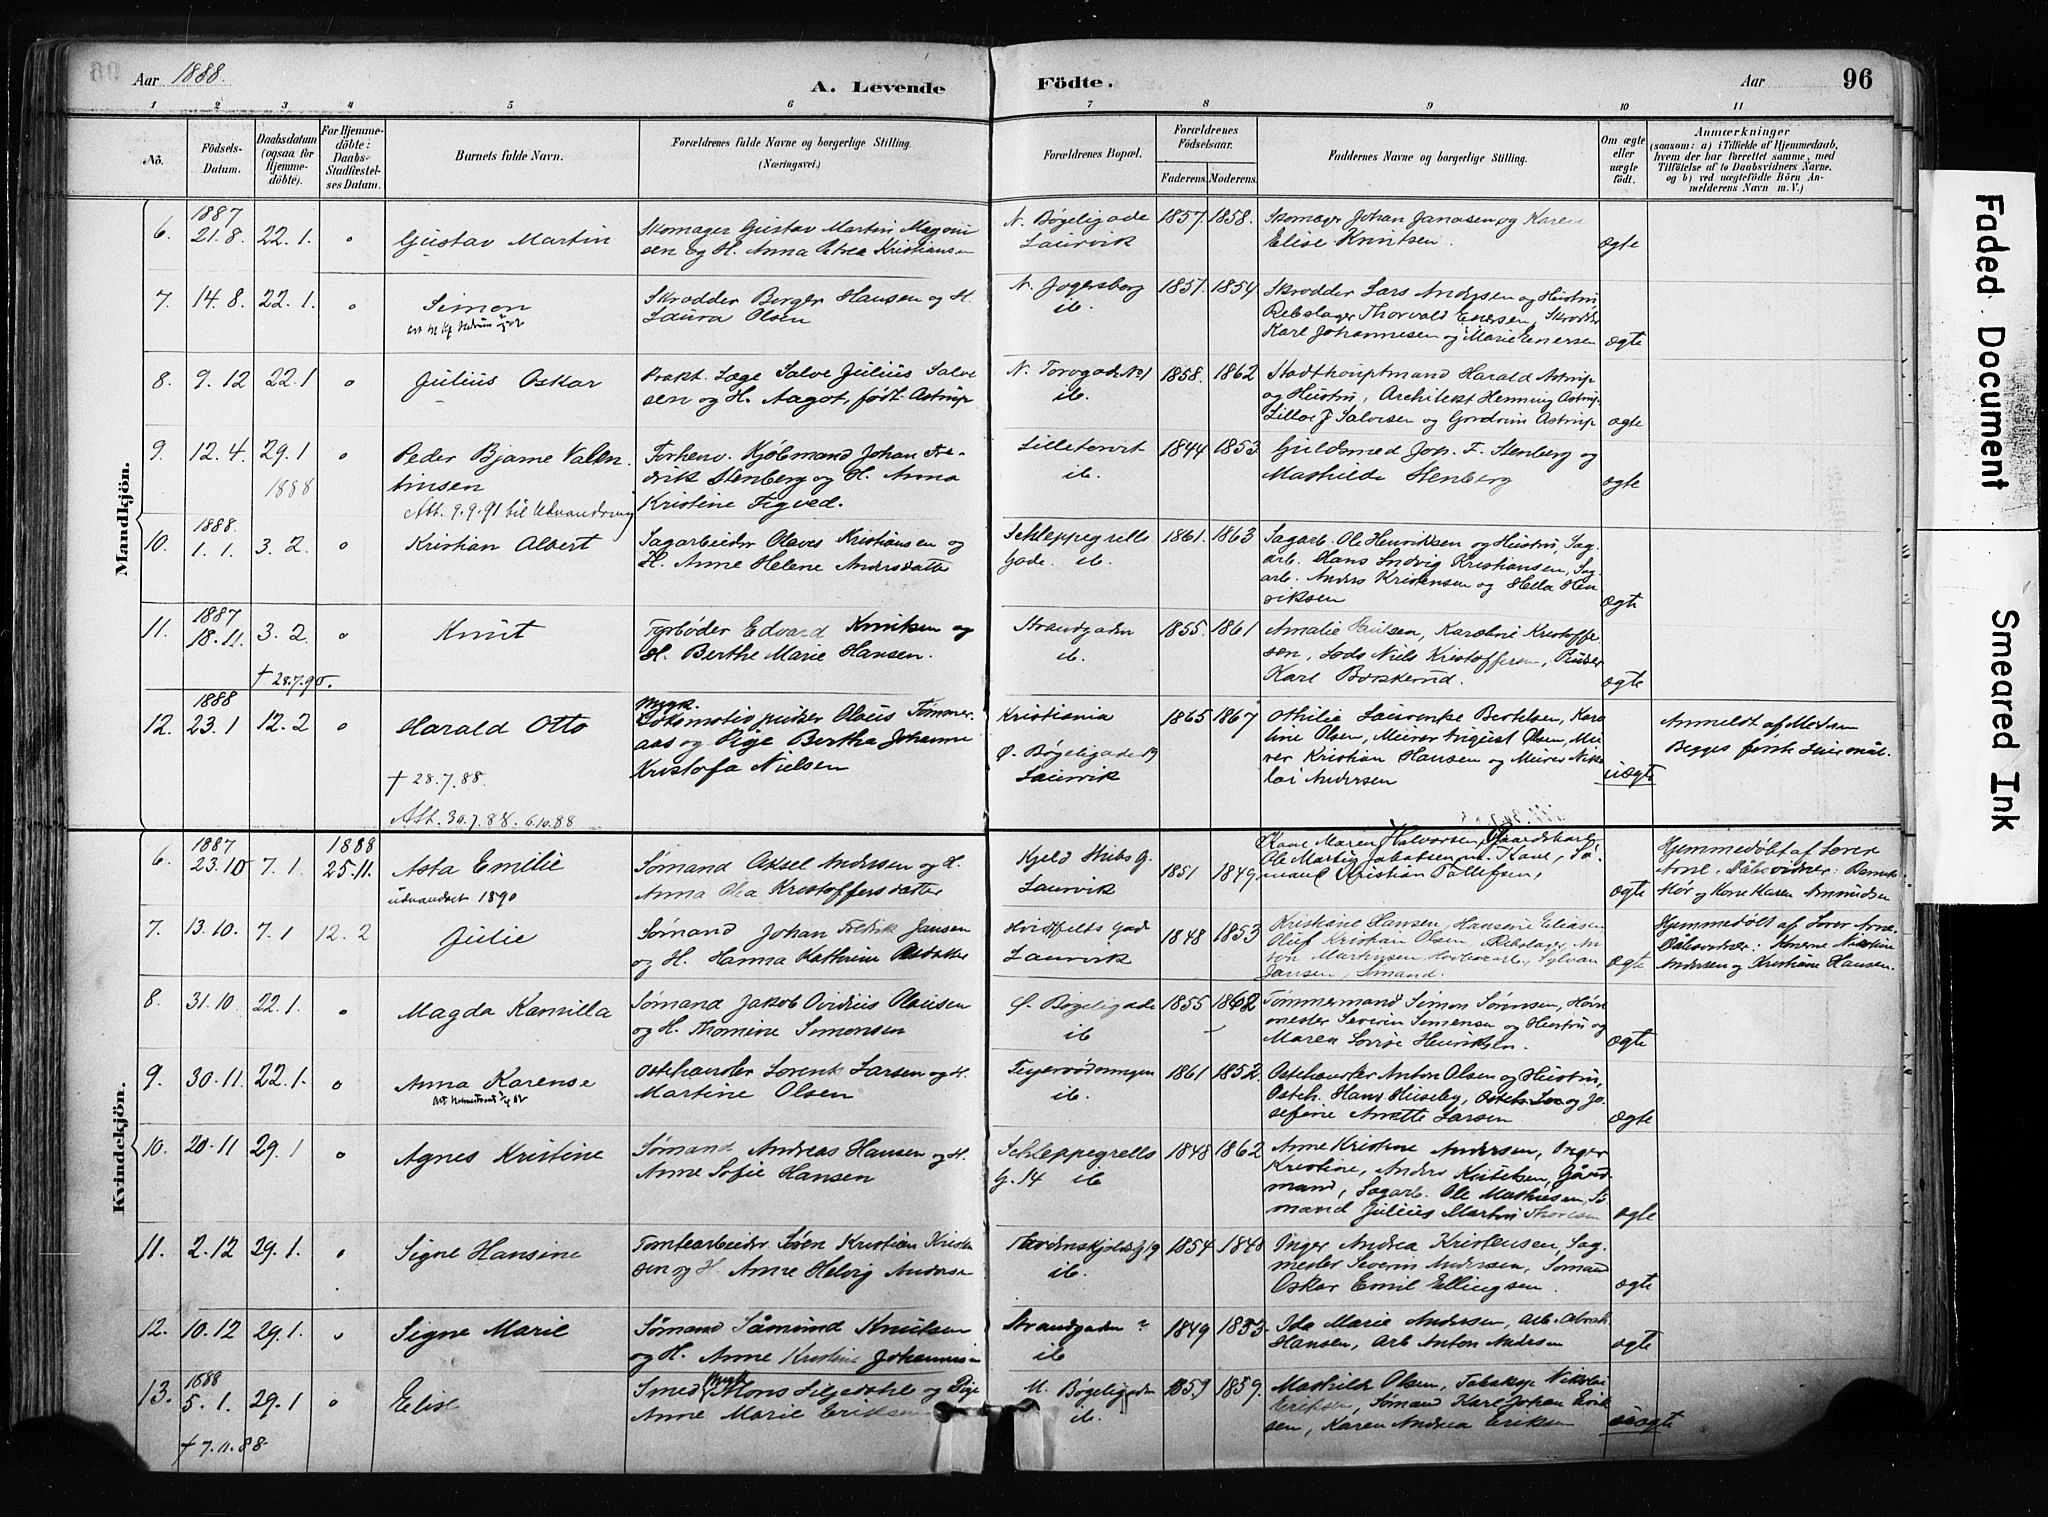 Aar 1888.
A. Levende Födte.
Aar
96
1 2 3 4 5 6 7 8 9 10 11
No.
Födsels-Datum.
Daabsdatum (ogsaa for Hjemmedöbte).
For Hjemmedöbte: Daabs-Stadfæstelses Datum.
Barnets fulde Navn.
Forældrenes fulde Navne og borgerlige Stilling. (Næringsvei.)
Forældrenes Bopæl.
Forældrenes Födselsaar.
Faderens. Moderens.
Faddernes Navne og borgerlige Stilling.
Om ægte eller uægte födt.
Anmærkninger
(saasom: a) i Tilfælde af Hjemmedaab, hvem der har forrettet samme, med Tilföielse af to Daabsvidners Navne, og b) ved uægtefödte Börn Anmelderens Navn m. V.)
Mandkjön.
6. 1887 21.8. 22.1. 0 Gustav Martin
Skomager Gustav Martin
sen og H. Anna Petrea Kristiansen
N. Bøgeligade Laurvik
1857. 1858.
Skomager Johan Janasen og Karen
Elise Knutsen.
ægte
7. 14.8. 22.1. 0 Simon
Skrædder Berger Hansen og H.
Laura Olsen
N. Jegersborg ib.
1857. 1854
Skrædder Lars Andersen og Hustru,
Rebslager Thorvald Enersen, Skrædder
Karl Johannesen og Marie Enersen
ægte
8. 9.12 22.1 0 Julius Oskar
Prakt. Læge Salve Julius Salve
sen og H. Aagot, født Astrup
N. Torvgade No 1 ib.
1858. 1862
Stadthauptmand Harald Astrup
og Hustru, Architekt Henning Astrup
J. Salvesen og Astrup
ægte
9. 12.4. 29.1 1888 0 Peder Bjarne Valen
tinsen
Att. 9.9.91 til Udvandring
Forhenv. Kjøbmand Johan Fre-
drik Stenberg og H. Anna
Kristine Figved.
Lilletorvet ib.
1844 1853
Guldsmed Joh. F. Stenberg og
Mathilde Stenberg
ægte
10. 1888. 1.1. 3.2. 0 Kristian Albert
Sagarbeider Olaves Kristiansen og
H. Anne Helene Andersdatter
Schleppegrells Gade. ib.
1861. 1863
Sagarb. Ole Henriksen og Hustru, Sag.
arb. Hans Ludvig Kristiansen, Sag
arb. Anders Kristensen og Hella Hen
riksen
ægte
11. 1887 18.11. 3.2. 0 Knut
† 28.7.90.
Fyrbøder Edvard Knutsen og
H. Berthe Marie Hansen.
Strandgaden ib.
1855. 1861
Amalie Paulsen, Karoline Kristoffe
sen, Lods Niels Kristoffersen,
Karl
ægte
12. 1888 23.1 12.2 0 Harald Otto
† 28.7.88.
Att. 30.7.88. 6.10.88
Ungk.
Lokomotivpudser Olaus Tømmer
aas og Pige Bertha Johanne
Kristofa Nielsen
Kristiania
Ø. Bøgeligade 19
Laurvik
1865 1867
Othilie Laurenke Bertelsen, Karo
line Olsen, Murer August Olsen, Mu
rer Kristian Hansen og Murer Niko
lai Andersen
uægte
Anmeldt af Moderen
Begges første Leiermål.
Kvindekjön.
6. 1887 23.10 7.1. 1888 25.11. Asta Emilie
udvandret 1890
Sømand Axsel Andersen og H.
Anna Olea Kristoffersdatter
Kjeld Stubs G. Laurvik
1851 1849
Kone Maren Halvorsen, Gaardskarl
Ole Martin Jakobsen m. Kone, Sø-
mand Kristian Tollefsen,
ægte
Hjemmedøbt af Lærer
Arne. Dåbsvidner: Barnets
Mor og Kone Karen Amundsen
7. 13.10. 7.1 12.2 Julie
Sømand Johan Fredrik Jansen
og H. Hanna Kathrine Olsdatter
Hvidtfelts Gade Laurvik
1848 1853
Kristiane Hansen, Hansine Eliasen
Oluf Kristian Olsen, Rebslager An
ton Martinsen, Sylvan
Jansen, Sømand.
ægte
Hjemmedøbt af Lærer Arne.
Dåbsvidner: Konerne Nikoline
Andersen og Kristiane Hansen.
8. 31.10. 22.1. 0 Magda Kamilla
Sømand Jakob Ovidius Olausen
og H. Thomine Simonsen
Ø. Bøgeligade ib
1855 1862
Tømmermand Simon Sørensen, Havne
mester Severin Simensen og Hustru og
Maren Lovise Henriksen.
ægte
9. 30.11. 22.1. 0 Anna Karense
Ostehandler Lorents Larsen og H.
Martine Olsen
ib.
1861 1852.
Ostehandler Anton Olsen og Hustru,
Osteh. Hans Huseby, og Jo
sefine Anette Larsen
ægte
10. 20.11 29.1 0 Agnes Kristine
Sømand Andreas Hansen og H.
Anne Sofie Hansen
Schleppegrells G. 14 ib
1848 1862
Anne Kristine Andersen, Inger
Kristine, Anders Kittelsen, Gård
mand, Sagarb. Ole Mathisen, Sø
mand Julius Martin Thoresen
ægte
11. 2.12 29.1. 0 Signe Hansine
Tomtearbeider Søren Kristian Kristen
sen og H. Anne Helvig Andersen
Tordenskjolds G. 19 ib.
1854 1848
Inger Andrea Kristensen, Sag.
mester Severin Andersen, Sømand
Oskar Emil Ellingsen.
ægte
12. 10.12 29.1. 0 Signe Marie
Sømand Såmund Knutsen
og H. Anne Kristine Johannesen
Strandgaden ? ib
1849 1853.
Ida Marie Andersen, Arb.
Hansen, Arb Anton Andersen
ægte
13. 1888 5.1. 29.1 0 Elise
† 7.11.88
Smed Ungk Mons Liljedahl og Pige
Anne Marie Eriksen
M. Bøgeligaden ib.
1859 1859.
Mathilde Olsen, Nikolai
Eriksen, Sømand Karl Johan Erik
sen, Karen Andrea Eriksen
uægte
Faded Document
Smeared Ink